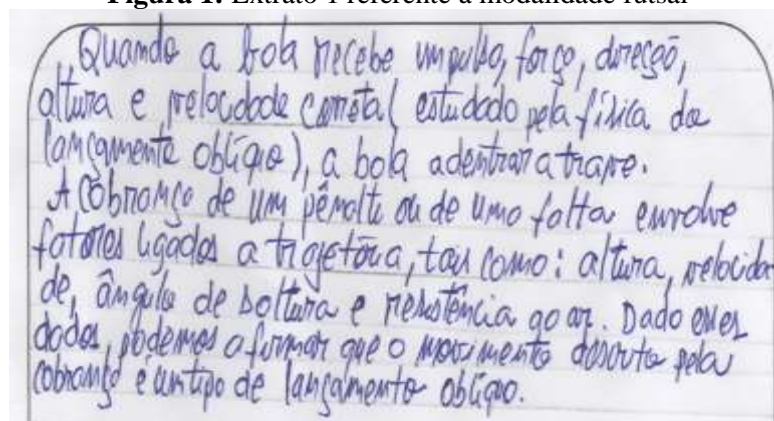 Figura 1: Extrato 1 referente à modalidade futsal
Quando a bola recebe impulso, força, direção,
altura e velocidade correta (estudado pela física do
lançamento oblíquo), a bola adentrar a trave.
A cobrança de um pênalti ou de uma falta envolve
fatores ligados a trajetória, tais como: altura, velocida
de, ângulo de soltura e resistência ao ar. Dado esses
dados, podemos afirmar que o movimento descrito pela
cobrança é um tipo de lançamento oblíquo.